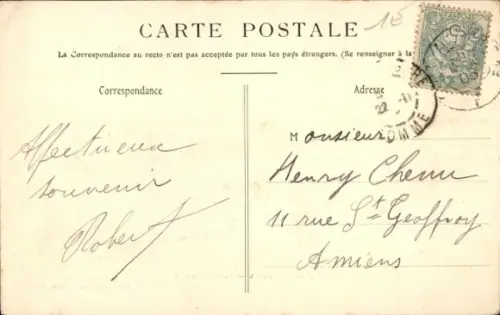 CARTE POSTALE
1E
La Correspondance au recto n'est pas acceptée par tous les pays étrangers. (Se renseigner à la
Correspondance
Adresse
22 -11
SOMME
Affectueux
souvenir
Robert
Monsieur
Henry Chenu
11 rue St Geoffroy
Amiens